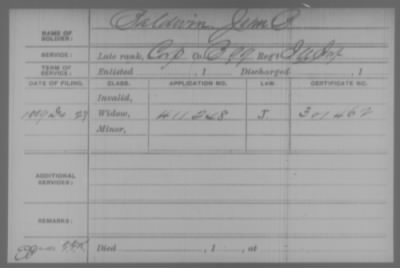 NAME OF SOLDIER: Baldwin
SERVICE: Late rank, Corp. Co. Reg't Inf
TERM OF SERVICE: Enlisted , 1 Discharged , 1
DATE OF FILING. CLASS. APPLICATION NO. LAW. CERTIFICATE NO.
Invalid,
Widow, 411248 301462
Minor,
ADDITIONAL SERVICES:
REMARKS:
Died , 1 , at